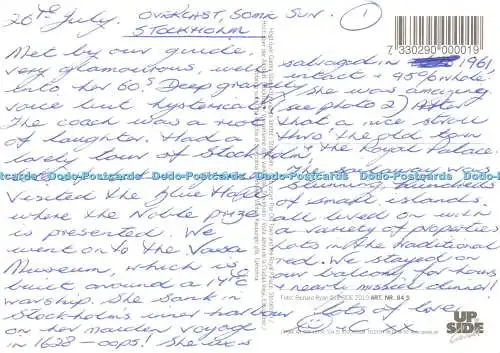 26TH July. OVERCAST, SOME SUN. 1
STOCKHOLM
Met by our guide.
very glamourous, well
into her 60s Deep gravelly
voice but hysterical
The coach was a riot
of laughter. Had a
lovely tour of Stockholm
Visited the Blue Hall
where the Noble prize
is presented. We
went on to the Vasa
Museum, which is
built around a 17thC
warship. She sank in
Stockholm's inner harbour
on her maiden voyage
in 1628 - oops! She was
salvaged in 1961,
intact + 95% whole
she was amazing
(see photo 2) After
that a nice stroll
thro' the old town
+ the Royal Palace.
stunning hundreds
of small islands.
all lived on with
a variety of properties
lots in the traditional
red. We stayed on
our balcony for hours
+ nearly missed dinner!
lots of love
C xx
7 330290 000019
Dodo-Postcards Dodo-Postcards Dodo-Postcards Dodo-Postcards Dodo-Postcards
ART. NR. 84 S
UP
SIDE